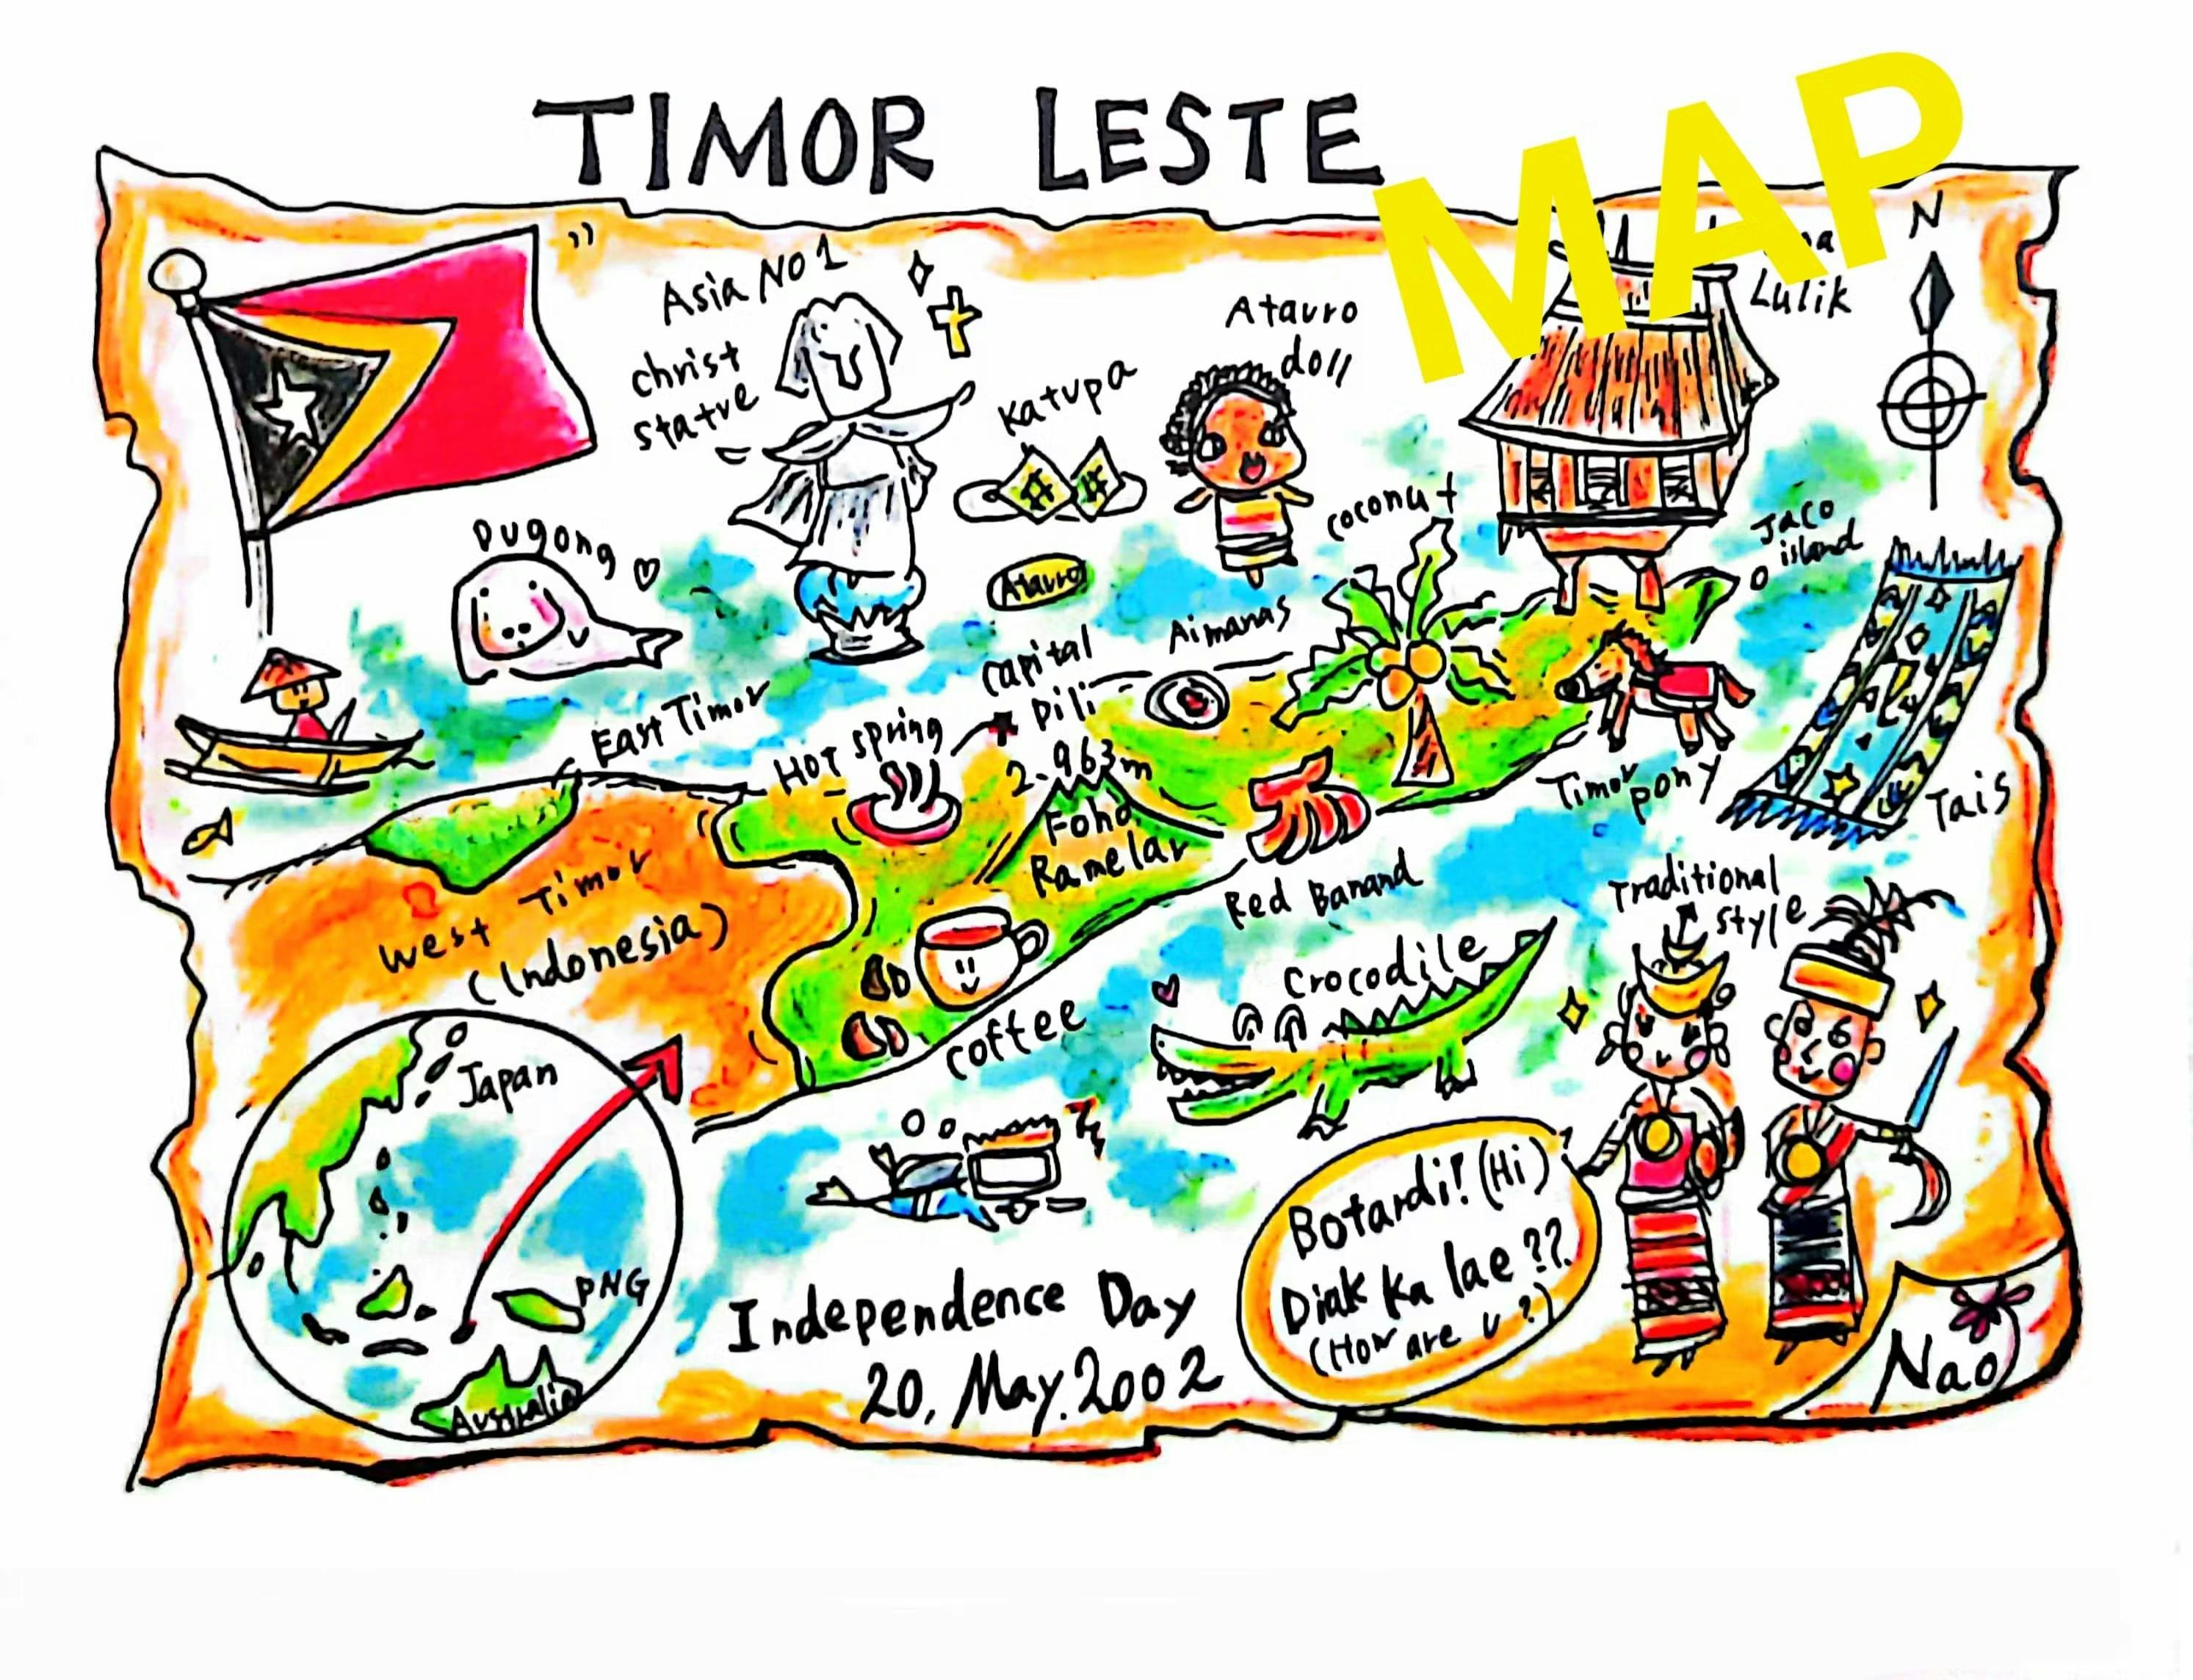 TIMOR LESTE
MAP
N
Asia No 1
christ
statue
Atauro
doll
Lulik
Katupa
coconut
Jaco
island
Dugong
Atauro
Aimanas
capital
Dili
East Timor
Hot spring
2.963m
Foho
Ramelar
Timor
pony
Tais
West Timor
(Indonesia)
Red Banana
Traditional
style
Crocodile
coffee
Japan
PNG
Australia
Botardi! (Hi)
Diak ka lae??
(How are u?)
Independence Day
20. May. 2002
Nao